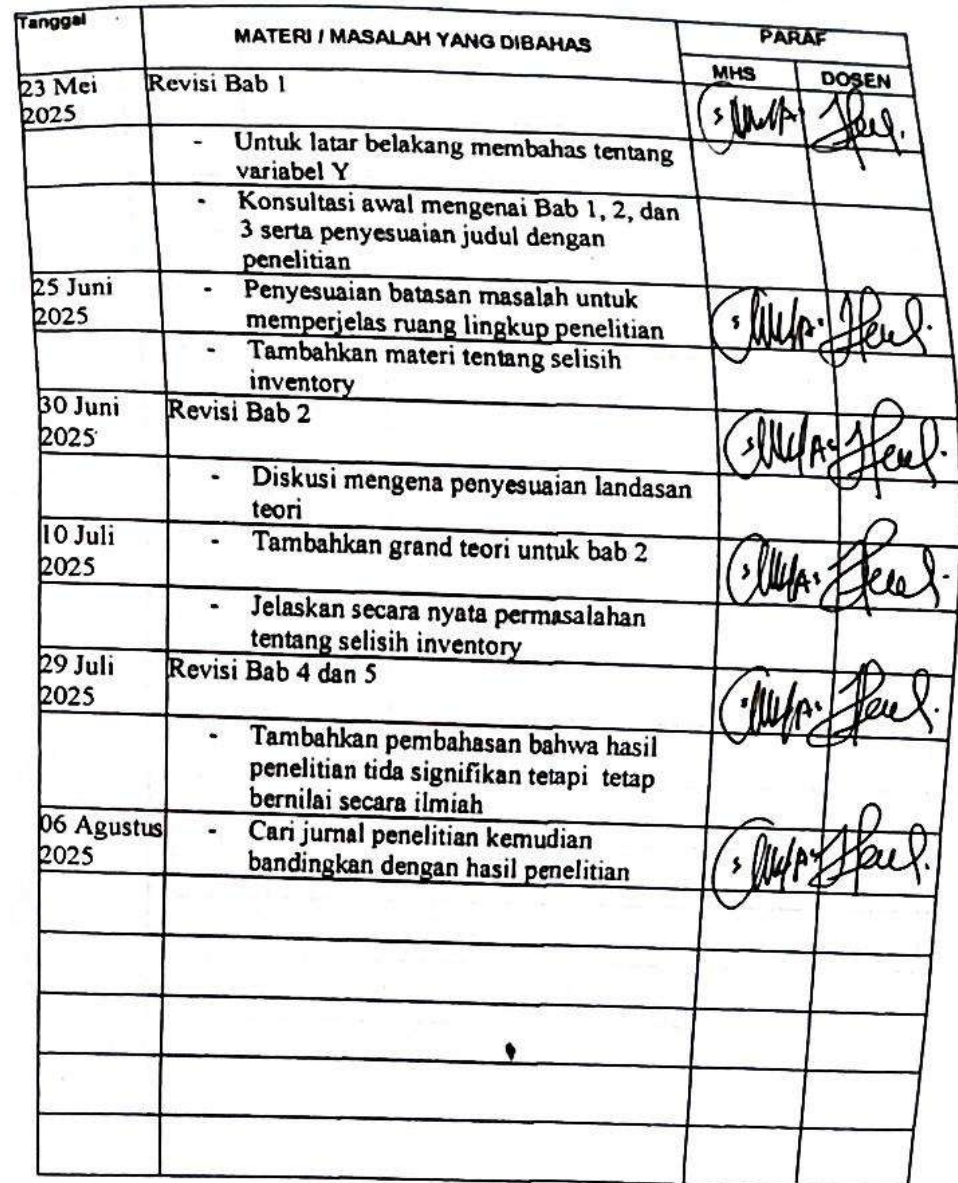 Tanggal
MATERI / MASALAH YANG DIBAHAS
PARAF
MHS
DOSEN
23 Mei
2025
Revisi Bab 1
- Untuk latar belakang membahas tentang
variabel Y
- Konsultasi awal mengenai Bab 1, 2, dan
3 serta penyesuaian judul dengan
penelitian
25 Juni
2025
- Penyesuaian batasan masalah untuk
memperjelas ruang lingkup penelitian
- Tambahkan materi tentang selisih
inventory
30 Juni
2025
Revisi Bab 2
- Diskusi mengena penyesuaian landasan
teori
10 Juli
2025
- Tambahkan grand teori untuk bab 2
- Jelaskan secara nyata permasalahan
tentang selisih inventory
29 Juli
2025
Revisi Bab 4 dan 5
- Tambahkan pembahasan bahwa hasil
penelitian tida signifikan tetapi tetap
bernilai secara ilmiah
06 Agustus
2025
- Cari jurnal penelitian kemudian
bandingkan dengan hasil penelitian